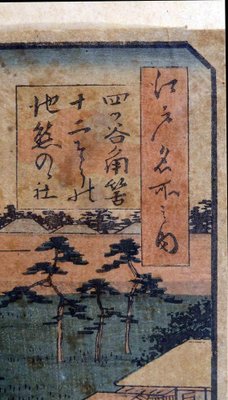 江戸名所之内
四ツ谷角筈
十二そうの
池熊の社